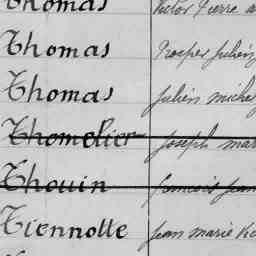 Thomas Victor Pierre
Thomas Prosper Julien
Thomas Julien Michel
Thomelier Joseph Mar
Thouin François Jean
Tiennotte Jean Marie Vic